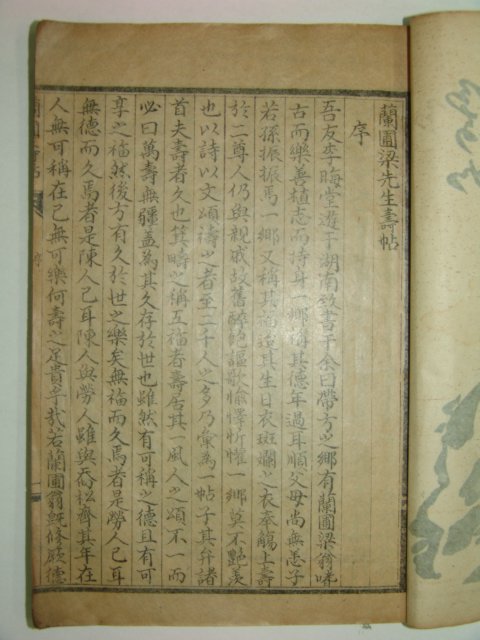 蘭圃梁先生壽帖
序
吾友李晦堂遊于湖南致書于余曰帶方之鄕有蘭圃梁翁嗜
古而樂善植志而持身一鄕稱其德年過耳順父母尙無恙子
若孫振振焉一鄕又稱其福迨其生日衣斑斕之衣奉觴上壽
於二尊人仍與親戚故舊醉飽謳歌愉懌忻懽一鄕莫不艶羨
也以詩以文頌禱之者至二千人之多乃彙爲一帖子其弁諸
首夫壽者久也箕疇之稱五福者壽居其一風人之頌不一而
必曰萬壽無疆盖爲其久存於世也雖然有可稱之德且有可
享之福然後方有久於世之樂矣無福而久焉者是勞人已耳
無德而久焉者是陳人已耳陳人與勞人雖與喬松齊其年在
人無可稱在己無可樂何壽之足貴乎哉若蘭圃翁旣修厥德
序
一